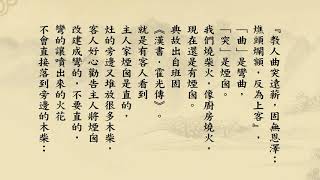 『教人曲突遠薪，固無恩澤；
燋頭爛額，反為上客』，
「曲」是彎曲，
「突」是煙囪。
我們燒柴火，像廚房燒火，
現在還是有煙囪。
典故出自班固
《漢書·霍光傳》。
就是有客人看到
主人家煙囪是直的，
灶的旁邊又堆放很多木柴，
客人好心勸告主人將煙囪
改建成彎的，不要直的，
彎的讓噴出來的火花
不會直接落到旁邊的木柴…